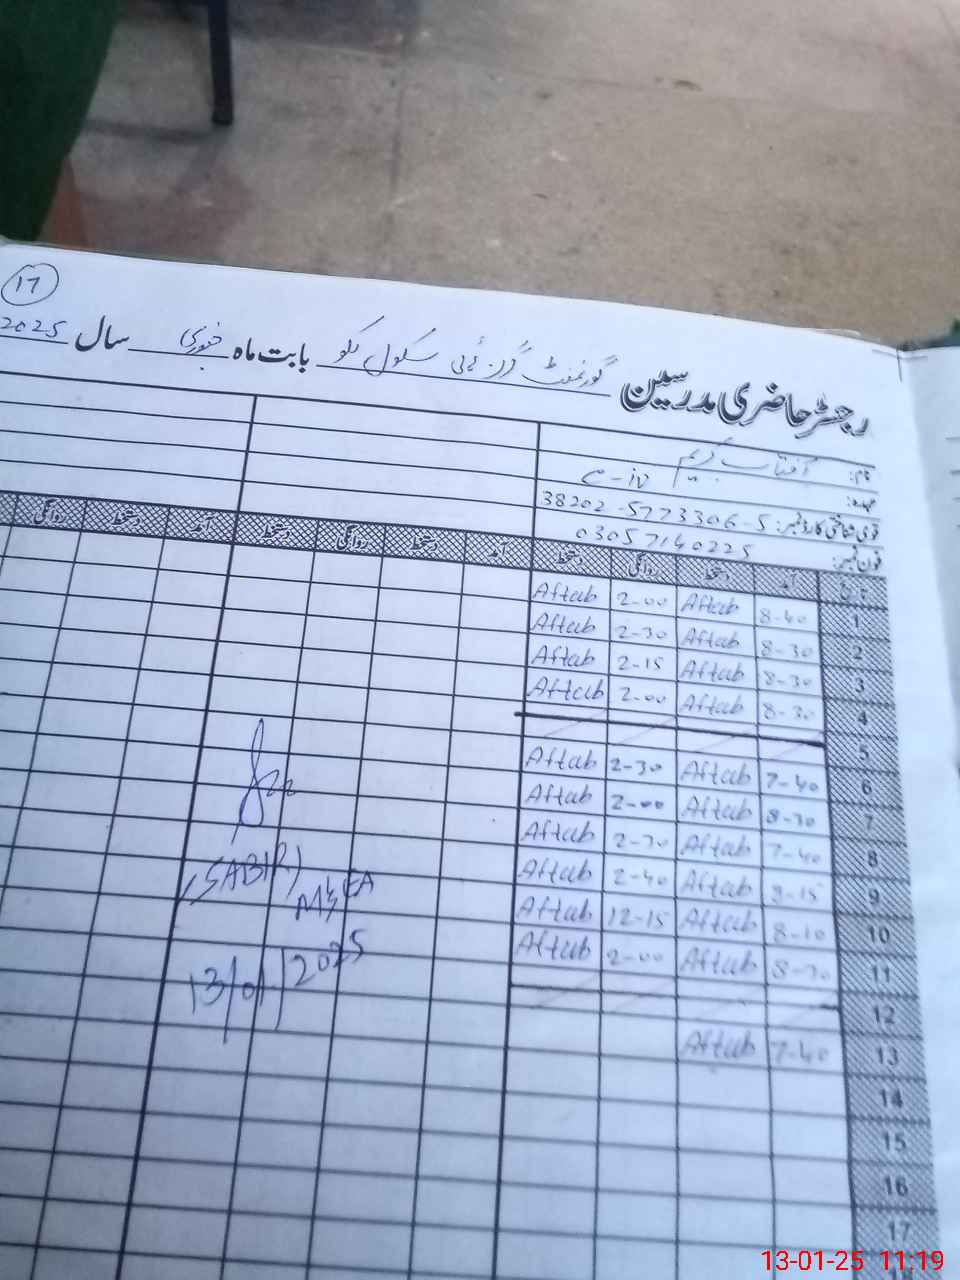 17
رجسٹر حاضری مدرسین گورنمنٹ گرلز ہائی سکول بابت ماہ جنوری سال 2025
نام: آفتاب کریم
عہدہ: C-iv
قومی شناختی کارڈ نمبر: 38202-5773306-5
فون نمبر: 03057140225
آمد دستخط روانگی دستخط آمد دستخط روانگی دستخط آمد دستخط روانگی
1 8-40 Aftab 2-00 Aftab
2 8-30 Aftab 2-30 Aftab
3 8-30 Aftab 2-15 Aftab
4 8-30 Aftab 2-00 Aftab
5
6 7-40 Aftab 2-30 Aftab
7 8-30 Aftab 2-00 Aftab
8 7-40 Aftab 2-30 Aftab
9 Aftab 2-40 Aftab
10 8-10 Aftab 12-15 Aftab
11 8-30 Aftab 2-00 Aftab
12
13 7-40 Aftab
14
15
16
17
(SABIR)
MEA
13/01/2025
13-01-25 11:19